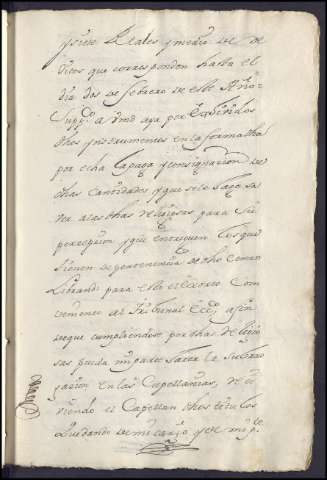 y siete Reales y medio de re
ditos que corresponden hasta el
dia dos de febrero de este Año=
Supp.co a Vmd aya por Exhividos
dhos Ynstrumentos en la forma dha
por echa la paga y consignacion de
dhas cantidades y que se le haga sa
ver a las dhas Religiosas para su
percepcion y que entreguen los que
tienen de pertenencia de dho Censo
Librando para ello el exorto Com
veniente al Tribunal Ecc.co a fin
de que cumpliendose por dhas Religio
sas pueda mi parte hacer la subrro
gacion en las Capellanias, de vi
viendo el Capellan dhos titulos
quedando de mi cargo y de mi p.te